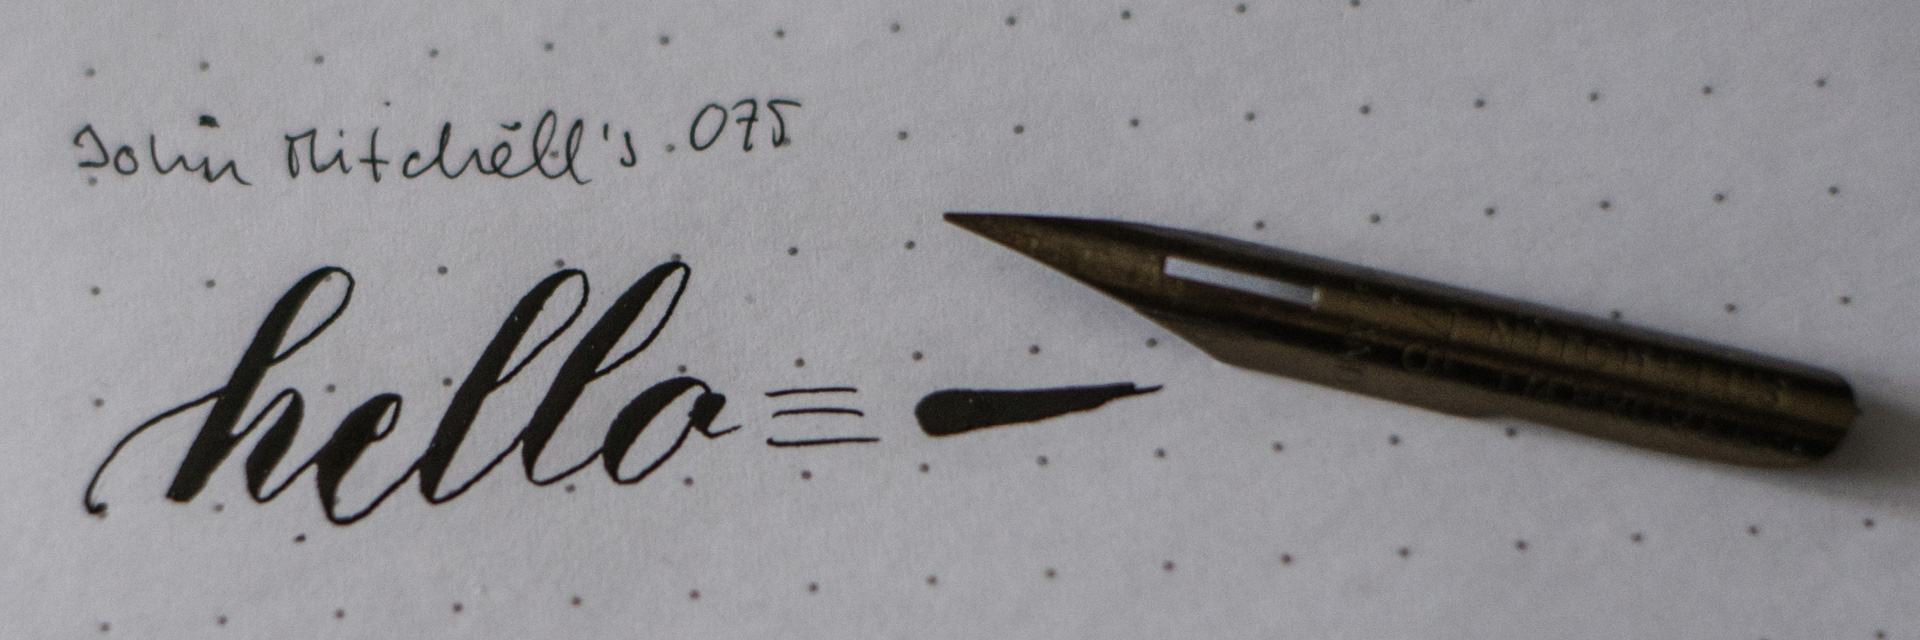 John Mitchell's .075
hello